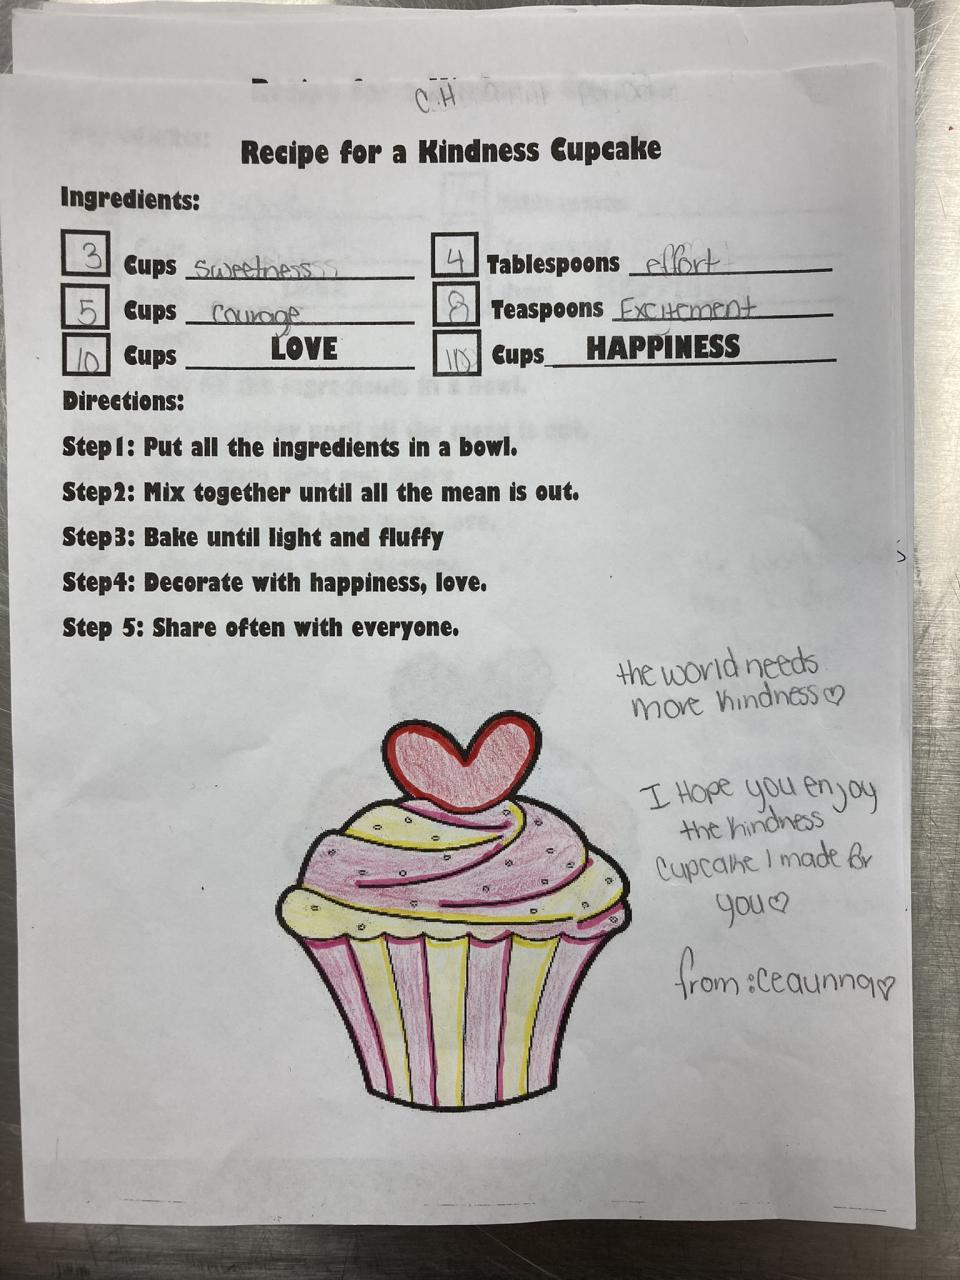 C.H
Recipe for a Kindness Cupcake
Ingredients:
3 Cups sweetness 4 Tablespoons effort
5 Cups courage 8 Teaspoons Excitement
10 Cups LOVE Cups HAPPINESS
Directions:
Step1: Put all the ingredients in a bowl.
Step2: Mix together until all the mean is out.
Step3: Bake until light and fluffy
Step4: Decorate with happiness, love.
Step 5: Share often with everyone.
the world needs
more kindness♡
I Hope you enjoy
the kindness
Cupcake I made for
you♡
from:Ceaunna♡